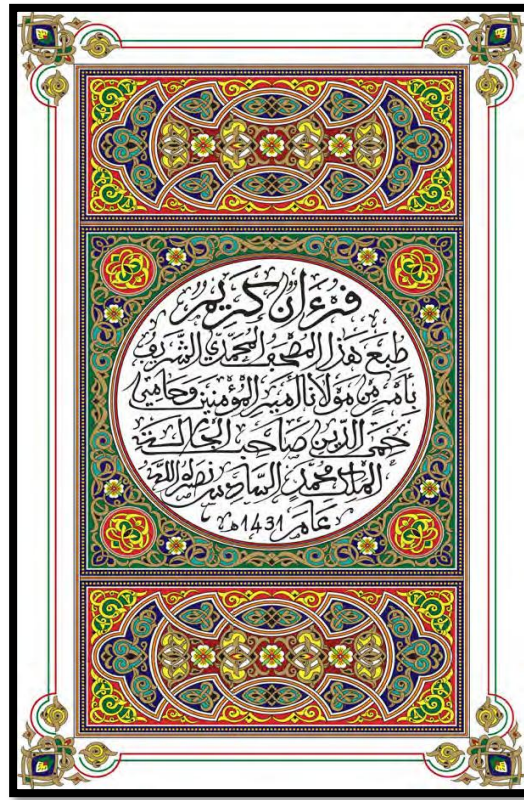 قرءان كريم
طبع هذا المصحف المحمدي الشريف
بأمر من مولانا أمير المؤمنين وحامي
حمى الدين صاحب الجلالة
الملك محمد السادس نصره الله
عام 1431هـ